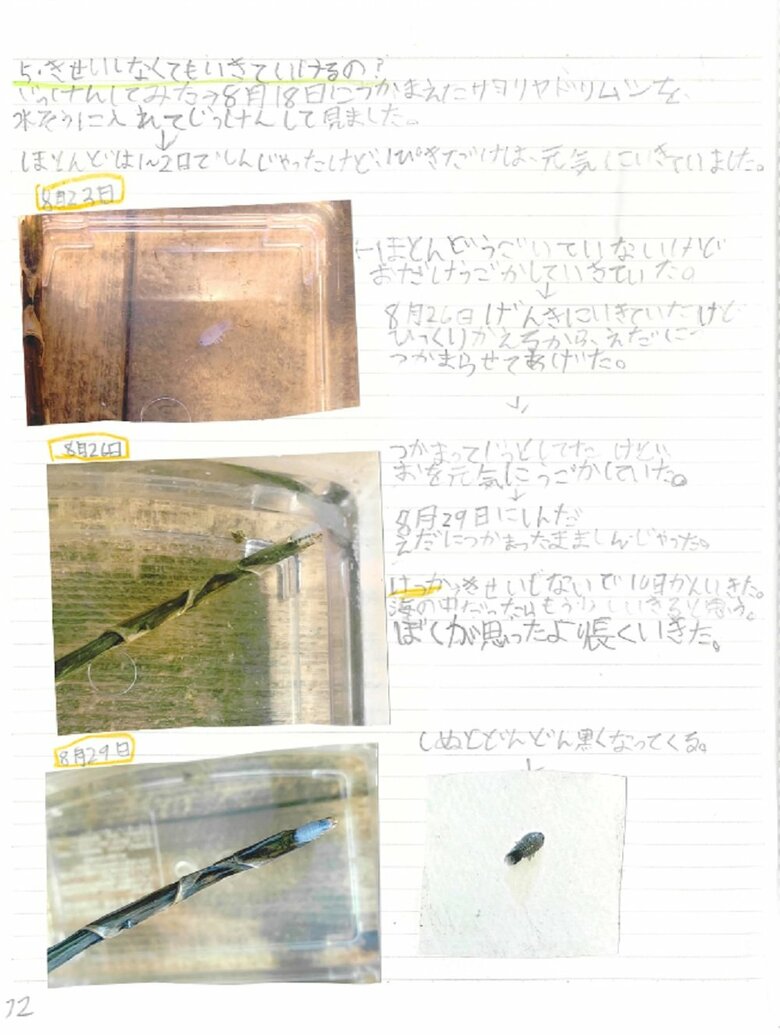 5.きせいしなくてもいきていけるの?
じっけんしてみた→8月18日につかまえたサヨリヤドリムシを、
水そうに入れてじっけんして見ました。
↓
ほとんどは1~2日でしんじゃったけど、1ぴきだけは、元気にいきていました。
8月23日
←ほとんどうごいていないけど
おだけうごかしていきていた。
↓
8月26日げんきにいきていたけど
ひっくりかえるから、えだに
つかまらせてあげた。
↓
8月26日
つかまってじっとしてたけど、
おを元気にうごかしていた。
↓
8月29日にしんだ
えだにつかまったまましんじゃった。
けっか→きせいしないで10日かんいきた。
海の中だったらもう少しいきると思う。
ぼくが思ったより長くいきた。
8月29日
しぬとどんどん黒くなってくる。
↓
12